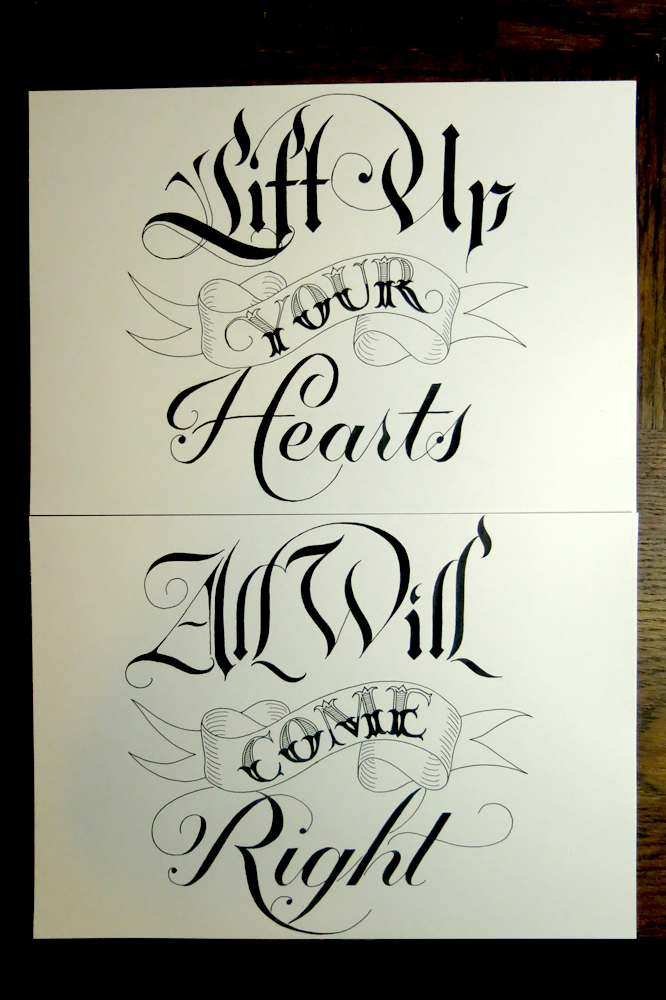 Lift Up
YOUR
Hearts
All Will
COME
Right